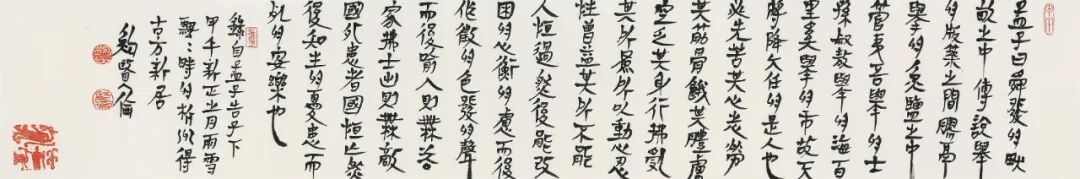 孟子曰舜發於畎
畝之中傅說舉
於版築之間膠鬲
舉於魚鹽之中
管夷吾舉於士
孫叔敖舉於海百
里奚舉於市故天
將降大任於是人也
必先苦其心志勞
其筋骨餓其體膚
空乏其身行拂亂
其所為所以動心忍
性曾益其所不能
人恒過然後能改
困於心衡於慮而後
作徵於色發於聲
而後喻入則無法
家拂士出則無敵
國外患者國恒亡然
後知生於憂患而
死於安樂也
錄自孟子告子下
甲午新正月雨雪
飄飄時於杭州得
十方新居
鮑賢倫